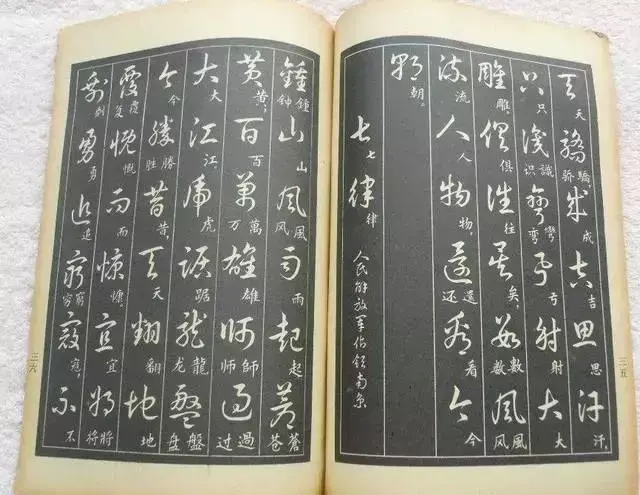 天驕成吉思汗
天驕，骄成吉思汗，
只識彎弓射大
只識识彎弯弓射大
雕俱往矣數風
雕，俱往矣，數数風风
流人物還看今
流人物，還还看今
朝
朝。
七律 人民解放军佔领南京
七律
三五
鍾山風雨起蒼
鍾钟山風风雨起蒼苍
黄百萬雄師過
黄，百萬万雄師师過过
大江虎踞龍盤
大江，虎踞龍龙盤盘
今勝昔天翻地
今勝胜昔，天翻地
覆慨而慷宜將
覆复慨而慷。宜將将
剩勇追窮寇不
剩勇追窮穷寇，不
三六